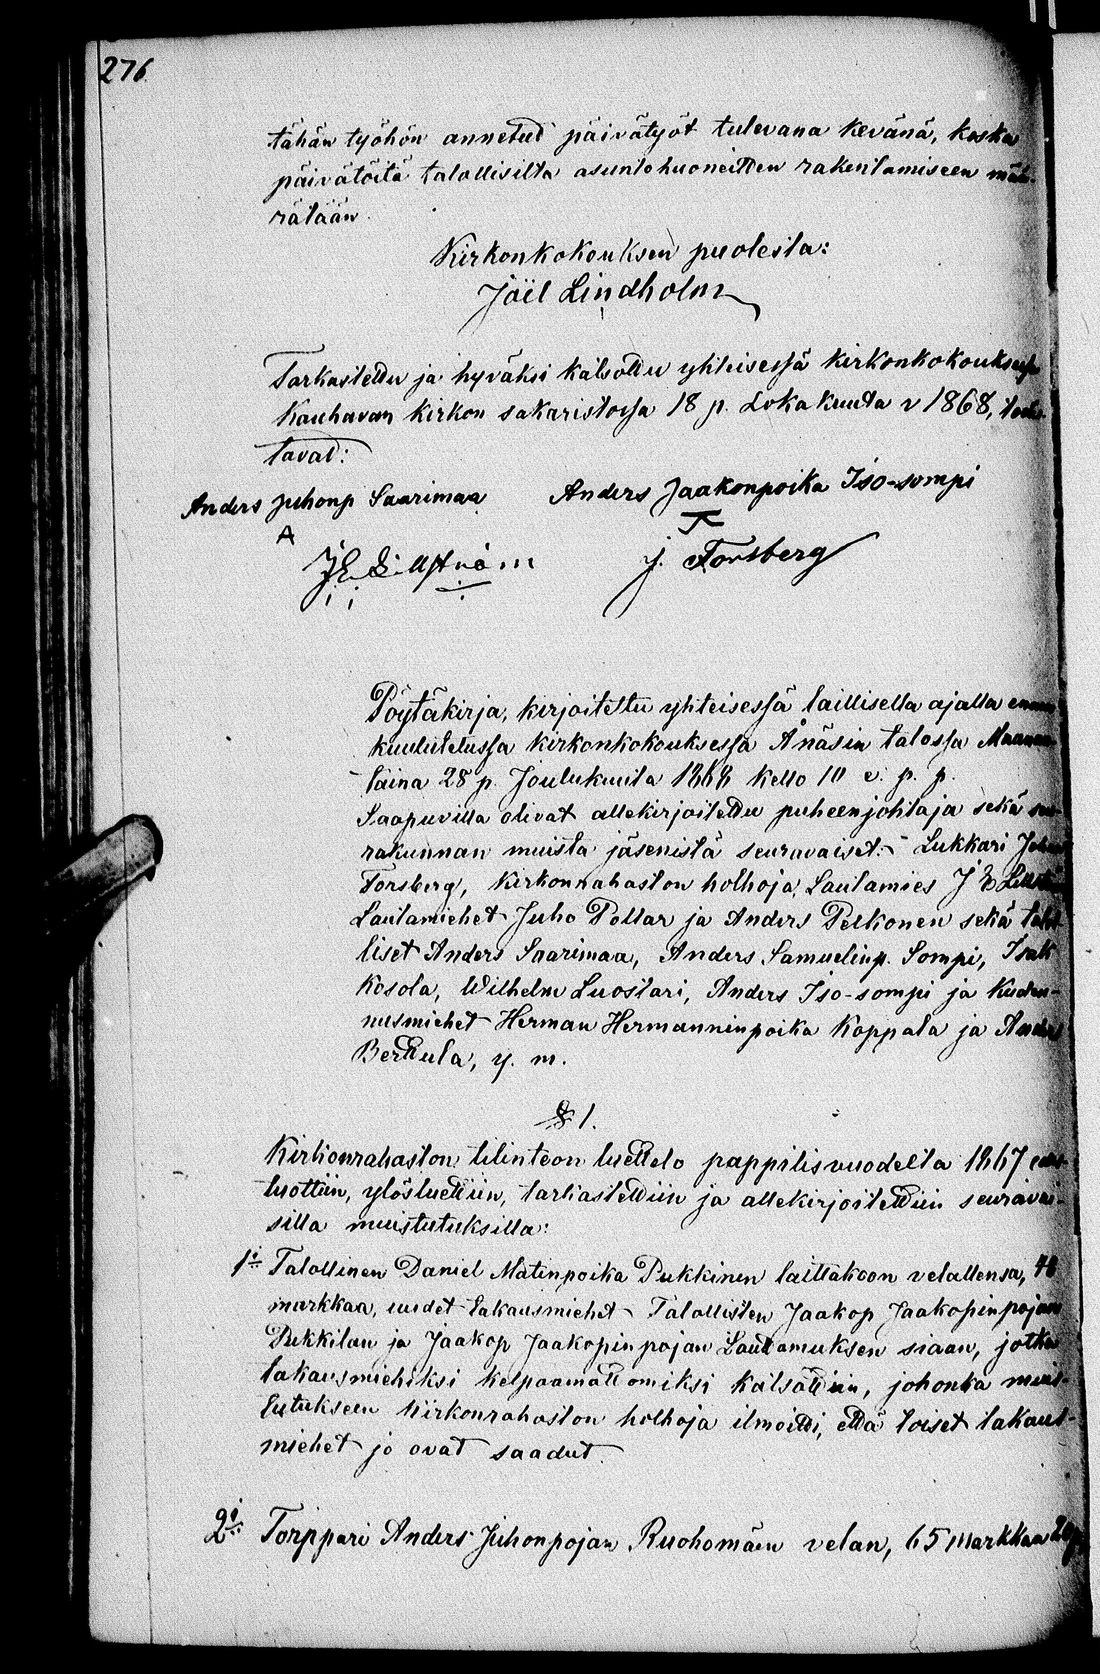 276.
tähän työhön annetud päivätyöt tulevana kevänä, koska
päivätöitä talollisilta asuntohuoneitten rakentamiseen mää-
rätään.
Kirkonkokouksen puolesta:
Joël Lindholm
Tarkastettu ja hyväksi katsottu yhteisessä kirkonkokouksessa
Kauhavan kirkon sakaristossa 18 p. Lokakuuta v 1868, todis-
tavat:
Anders Juhonp Saarimaa Anders Jaakonpoika Iso-sompi
A
J E Lillström J. Forsberg
Pöytäkirja, kirjoitettu yhteisessä laillisella ajalla ennen
kuulutetussa kirkonkokouksessa Ånäsin talossa Maanan-
taina 28 p. Joulukuuta 1868 kello 10 e. p. p.
Saapuvilla olivat allekirjoitettu puheenjohtaja sekä seu-
rakunnan muista jäsenistä seuravaiset:- Lukkari Johan
Forsberg, Kirkonrahaston holhoja, Lautamies J E Lillström
Lautamiehet Juho Pollar ja Anders Pelkonen sekä talol-
liset Anders Saarimaa, Anders Samuelinp. Sompi, Isak
Kosola, Wilhelm Luostari, Anders Iso-sompi ja Kuden-
nusmiehet Herman Hermanninpoika Koppala ja Anders
Berttula, y. m.
§ 1.
Kirkonrahaston tilinteon luettelo pappilisvuodelta 1867 edes-
tuottiin, ylösluettiin, tarkastettiin ja allekirjoitettiin seuravai-
silla muistutuksilla:
1:i Talollinen Daniel Matinpoika Pukkinen laittakoon velallensa, 48
markkaa, uudet takausmiehet Talollisten Jaakop Jaakopinpojan
Pukkilan ja Jaakop Jaakopinpojan Lauttamuksen siaan, jotka
takausmiehiksi kelpaamattomiksi katsottiin, johonka muis-
tutukseen Kirkonrahaston holhoja ilmoitti, että toiset takaus-
miehet jo ovat saadut.
2:i Torppari Anders Juhonpojan Ruohomäen velan, 65 markkaa